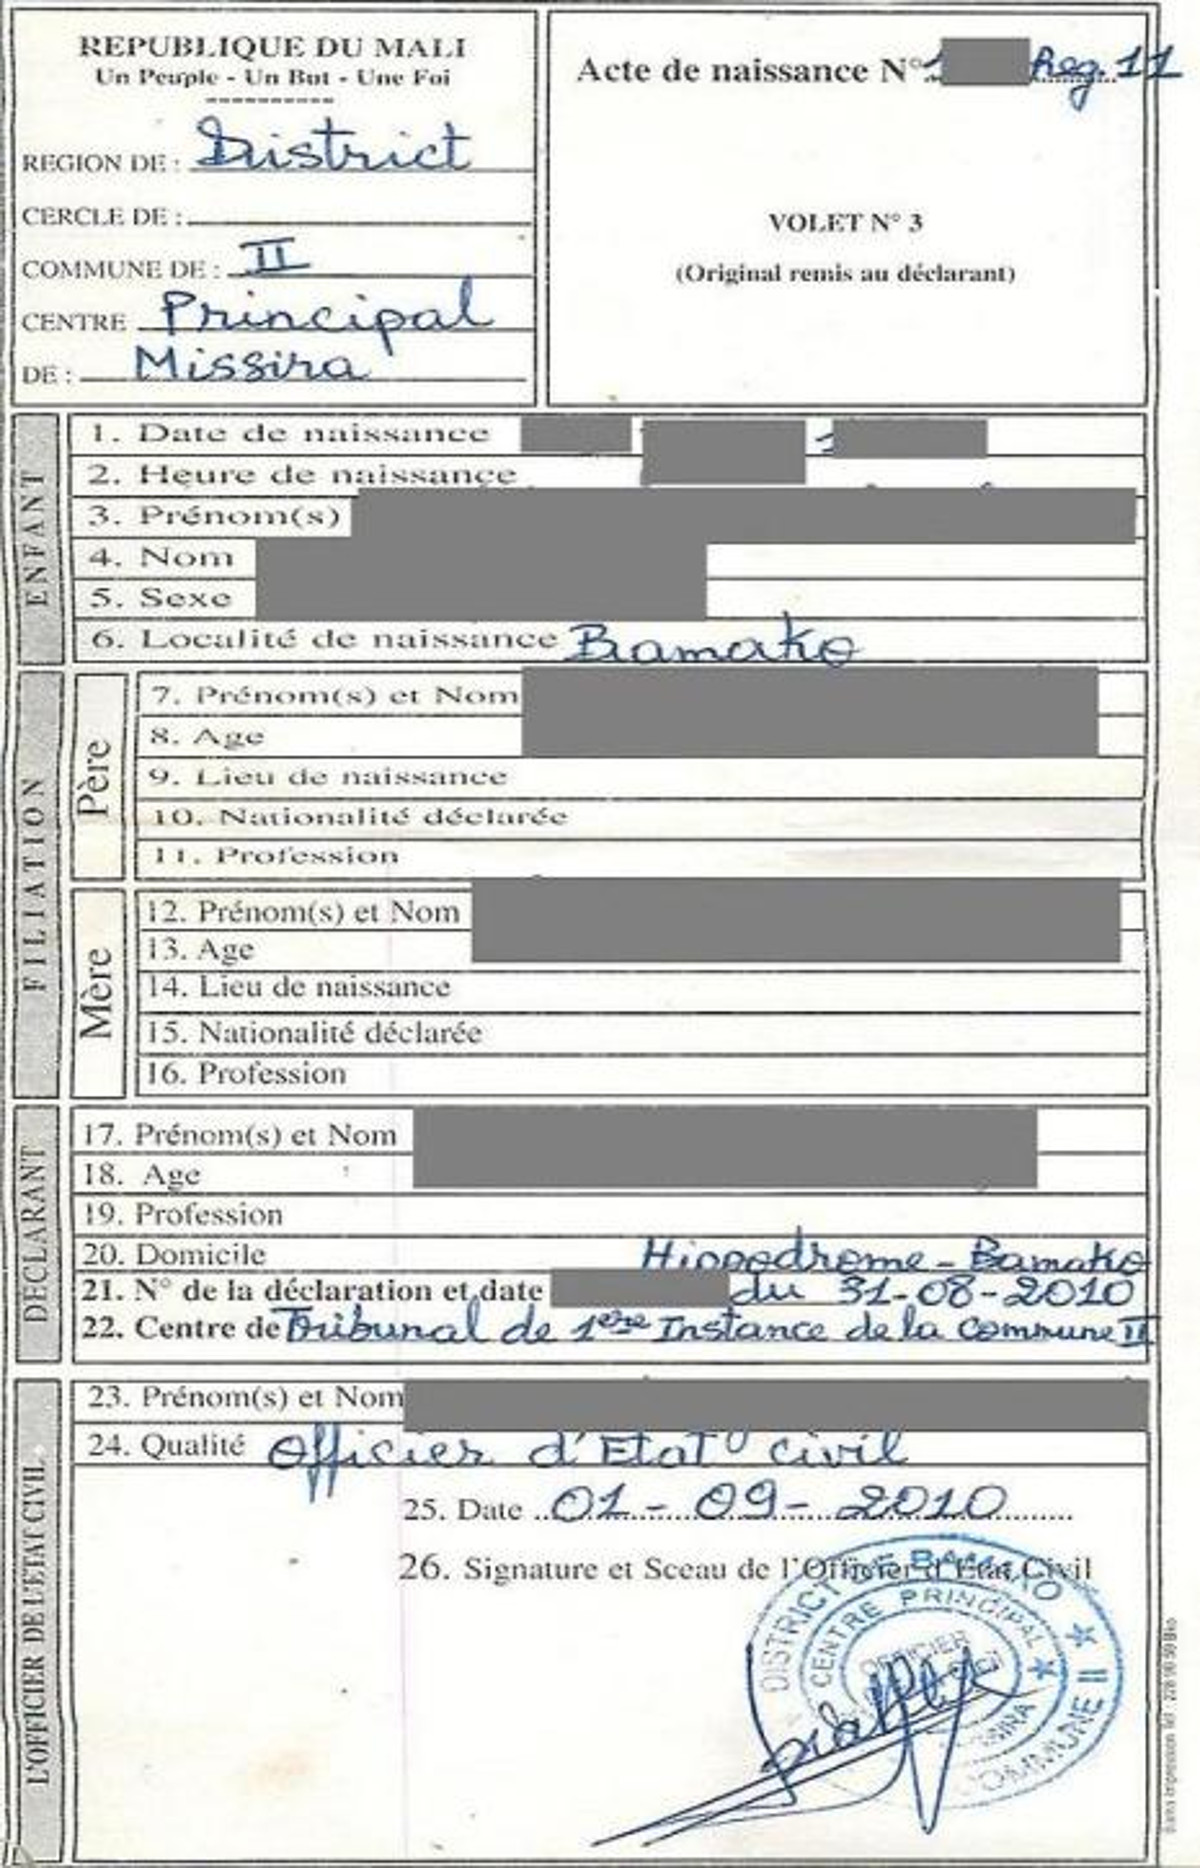 REPUBLIQUE DU MALI
Un Peuple - Un But - Une Foi
REGION DE : District
CERCLE DE :
COMMUNE DE : II
CENTRE Principal
DE : Missira
Acte de naissance N° Reg. 11
VOLET N° 3
(Original remis au déclarant)
ENFANT
1. Date de naissance
2. Heure de naissance
3. Prénom(s)
4. Nom
5. Sexe
6. Localité de naissance Bamako
FILIATION
Père
7. Prénom(s) et Nom
8. Age
9. Lieu de naissance
10. Nationalité déclarée
11. Profession
Mère
12. Prénom(s) et Nom
13. Age
14. Lieu de naissance
15. Nationalité déclarée
16. Profession
DECLARANT
17. Prénom(s) et Nom
18. Age
19. Profession
20. Domicile Hippodrome - Bamako
21. N° de la déclaration et date du 31-08-2010
22. Centre de Tribunal de 1ere Instance de la Commune II
L'OFFICIER DE L'ETAT CIVIL
23. Prénom(s) et Nom
24. Qualité Officier d'Etat civil
25. Date 01-09-2010
26. Signature et Sceau de l'Officier d'Etat Civil
DISTRICT DE BAMAKO
COMMUNE II
CENTRE PRINCIPAL
OFFICIER